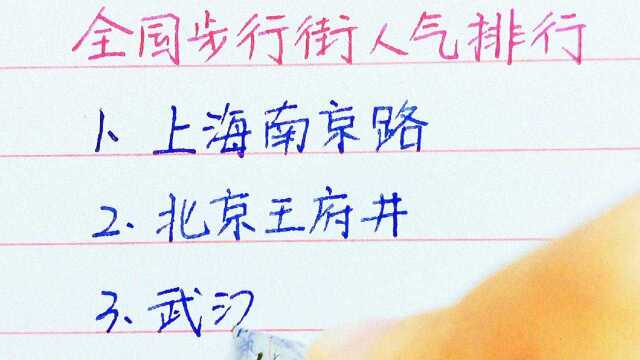 全国步行街人气排行
1、上海南京路
2、北京王府井
3、武汉